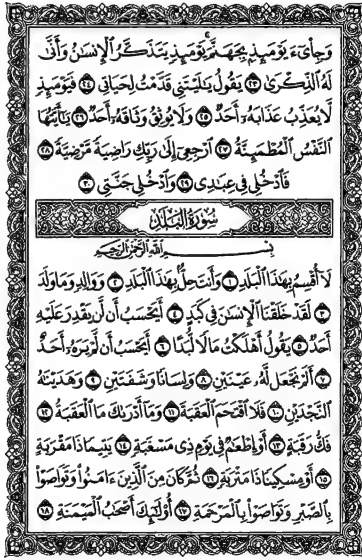 وَجِاْىٓءَ يَوْمَئِذِۭ بِجَهَنَّمَ يَوْمَئِذٍ يَتَذَكَّرُ ٱلْإِنسَٰنُ وَأَنَّىٰ
لَهُ ٱلذِّكْرَىٰ ٢٣ يَقُولُ يَٰلَيْتَنِى قَدَّمْتُ لِحَيَاتِى ٢٤ فَيَوْمَئِذٍ
لَّا يُعَذِّبُ عَذَابَهُۥٓ أَحَدٌ ٢٥ وَلَا يُوثِقُ وَثَاقَهُۥٓ أَحَدٌ ٢٦ يَٰٓأَيَّتُهَا
ٱلنَّفْسُ ٱلْمُطْمَئِنَّةُ ٢٧ ٱرْجِعِىٓ إِلَىٰ رَبِّكِ رَاضِيَةً مَّرْضِيَّةً ٢٨
فَٱدْخُلِى فِى عِبَٰدِى ٢٩ وَٱدْخُلِى جَنَّتِى ٣٠
سُورَةُ الْبَلَدِ
بِسْمِ ٱللَّهِ ٱلرَّحْمَٰنِ ٱلرَّحِيمِ
لَآ أُقْسِمُ بِهَٰذَا ٱلْبَلَدِ ١ وَأَنتَ حِلٌّۢ بِهَٰذَا ٱلْبَلَدِ ٢ وَوَالِدٍ وَمَا وَلَدَ
٣ لَقَدْ خَلَقْنَا ٱلْإِنسَٰنَ فِى كَبَدٍ ٤ أَيَحْسَبُ أَن لَّن يَقْدِرَ عَلَيْهِ
أَحَدٌ ٥ يَقُولُ أَهْلَكْتُ مَالًا لُّبَدًا ٦ أَيَحْسَبُ أَن لَّمْ يَرَهُۥٓ أَحَدٌ
٧ أَلَمْ نَجْعَل لَّهُۥ عَيْنَيْنِ ٨ وَلِسَانًا وَشَفَتَيْنِ ٩ وَهَدَيْنَٰهُ
ٱلنَّجْدَيْنِ ١٠ فَلَا ٱقْتَحَمَ ٱلْعَقَبَةَ ١١ وَمَآ أَدْرَىٰكَ مَا ٱلْعَقَبَةُ ١٢
فَكُّ رَقَبَةٍ ١٣ أَوْ إِطْعَٰمٌ فِى يَوْمٍ ذِى مَسْغَبَةٍ ١٤ يَتِيمًا ذَا مَقْرَبَةٍ
١٥ أَوْ مِسْكِينًا ذَا مَتْرَبَةٍ ١٦ ثُمَّ كَانَ مِنَ ٱلَّذِينَ ءَامَنُوا۟ وَتَوَاصَوْا۟
بِٱلصَّبْرِ وَتَوَاصَوْا۟ بِٱلْمَرْحَمَةِ ١٧ أُو۟لَٰٓئِكَ أَصْحَٰبُ ٱلْمَيْمَنَةِ ١٨